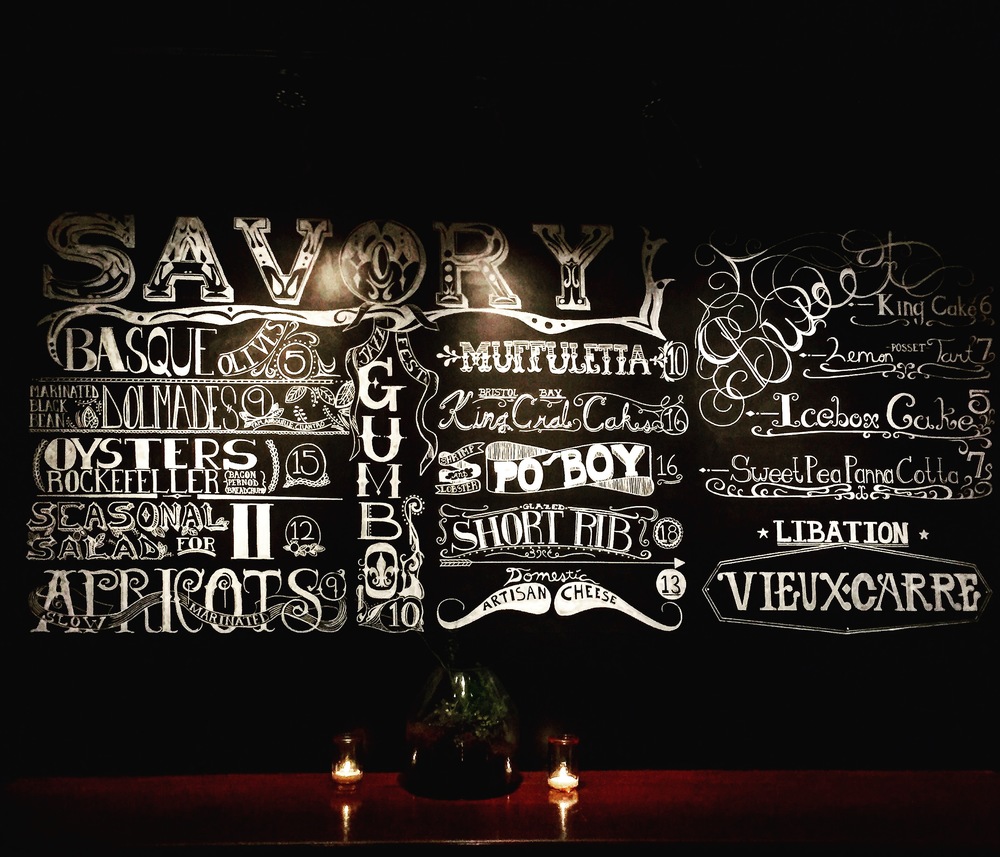 SAVORY
BASQUE OLIVES 5
MARINATED
BLACK
BEAN
DOLMADES 9
OYSTERS
ROCKEFELLER
BACON
PERNOD
BREADCRUMB
15
SEASONAL
SALAD FOR II
12
APRICOTS 9
SLOW MARINATED
JAZZ FEST
GUMBO
10
MUFFULETTA 10
BRISTOL BAY
King Crab Cakes 16
SHRIMP
AND
LOBSTER
PO'BOY 16
GLAZED
SHORT RIB 18
Domestic
ARTISAN CHEESE
13
King Cake 6
Lemon POSSET Tart 7
Icebox Cake 5
Sweet Pea Panna Cotta 7
LIBATION
VIEUX·CARRE